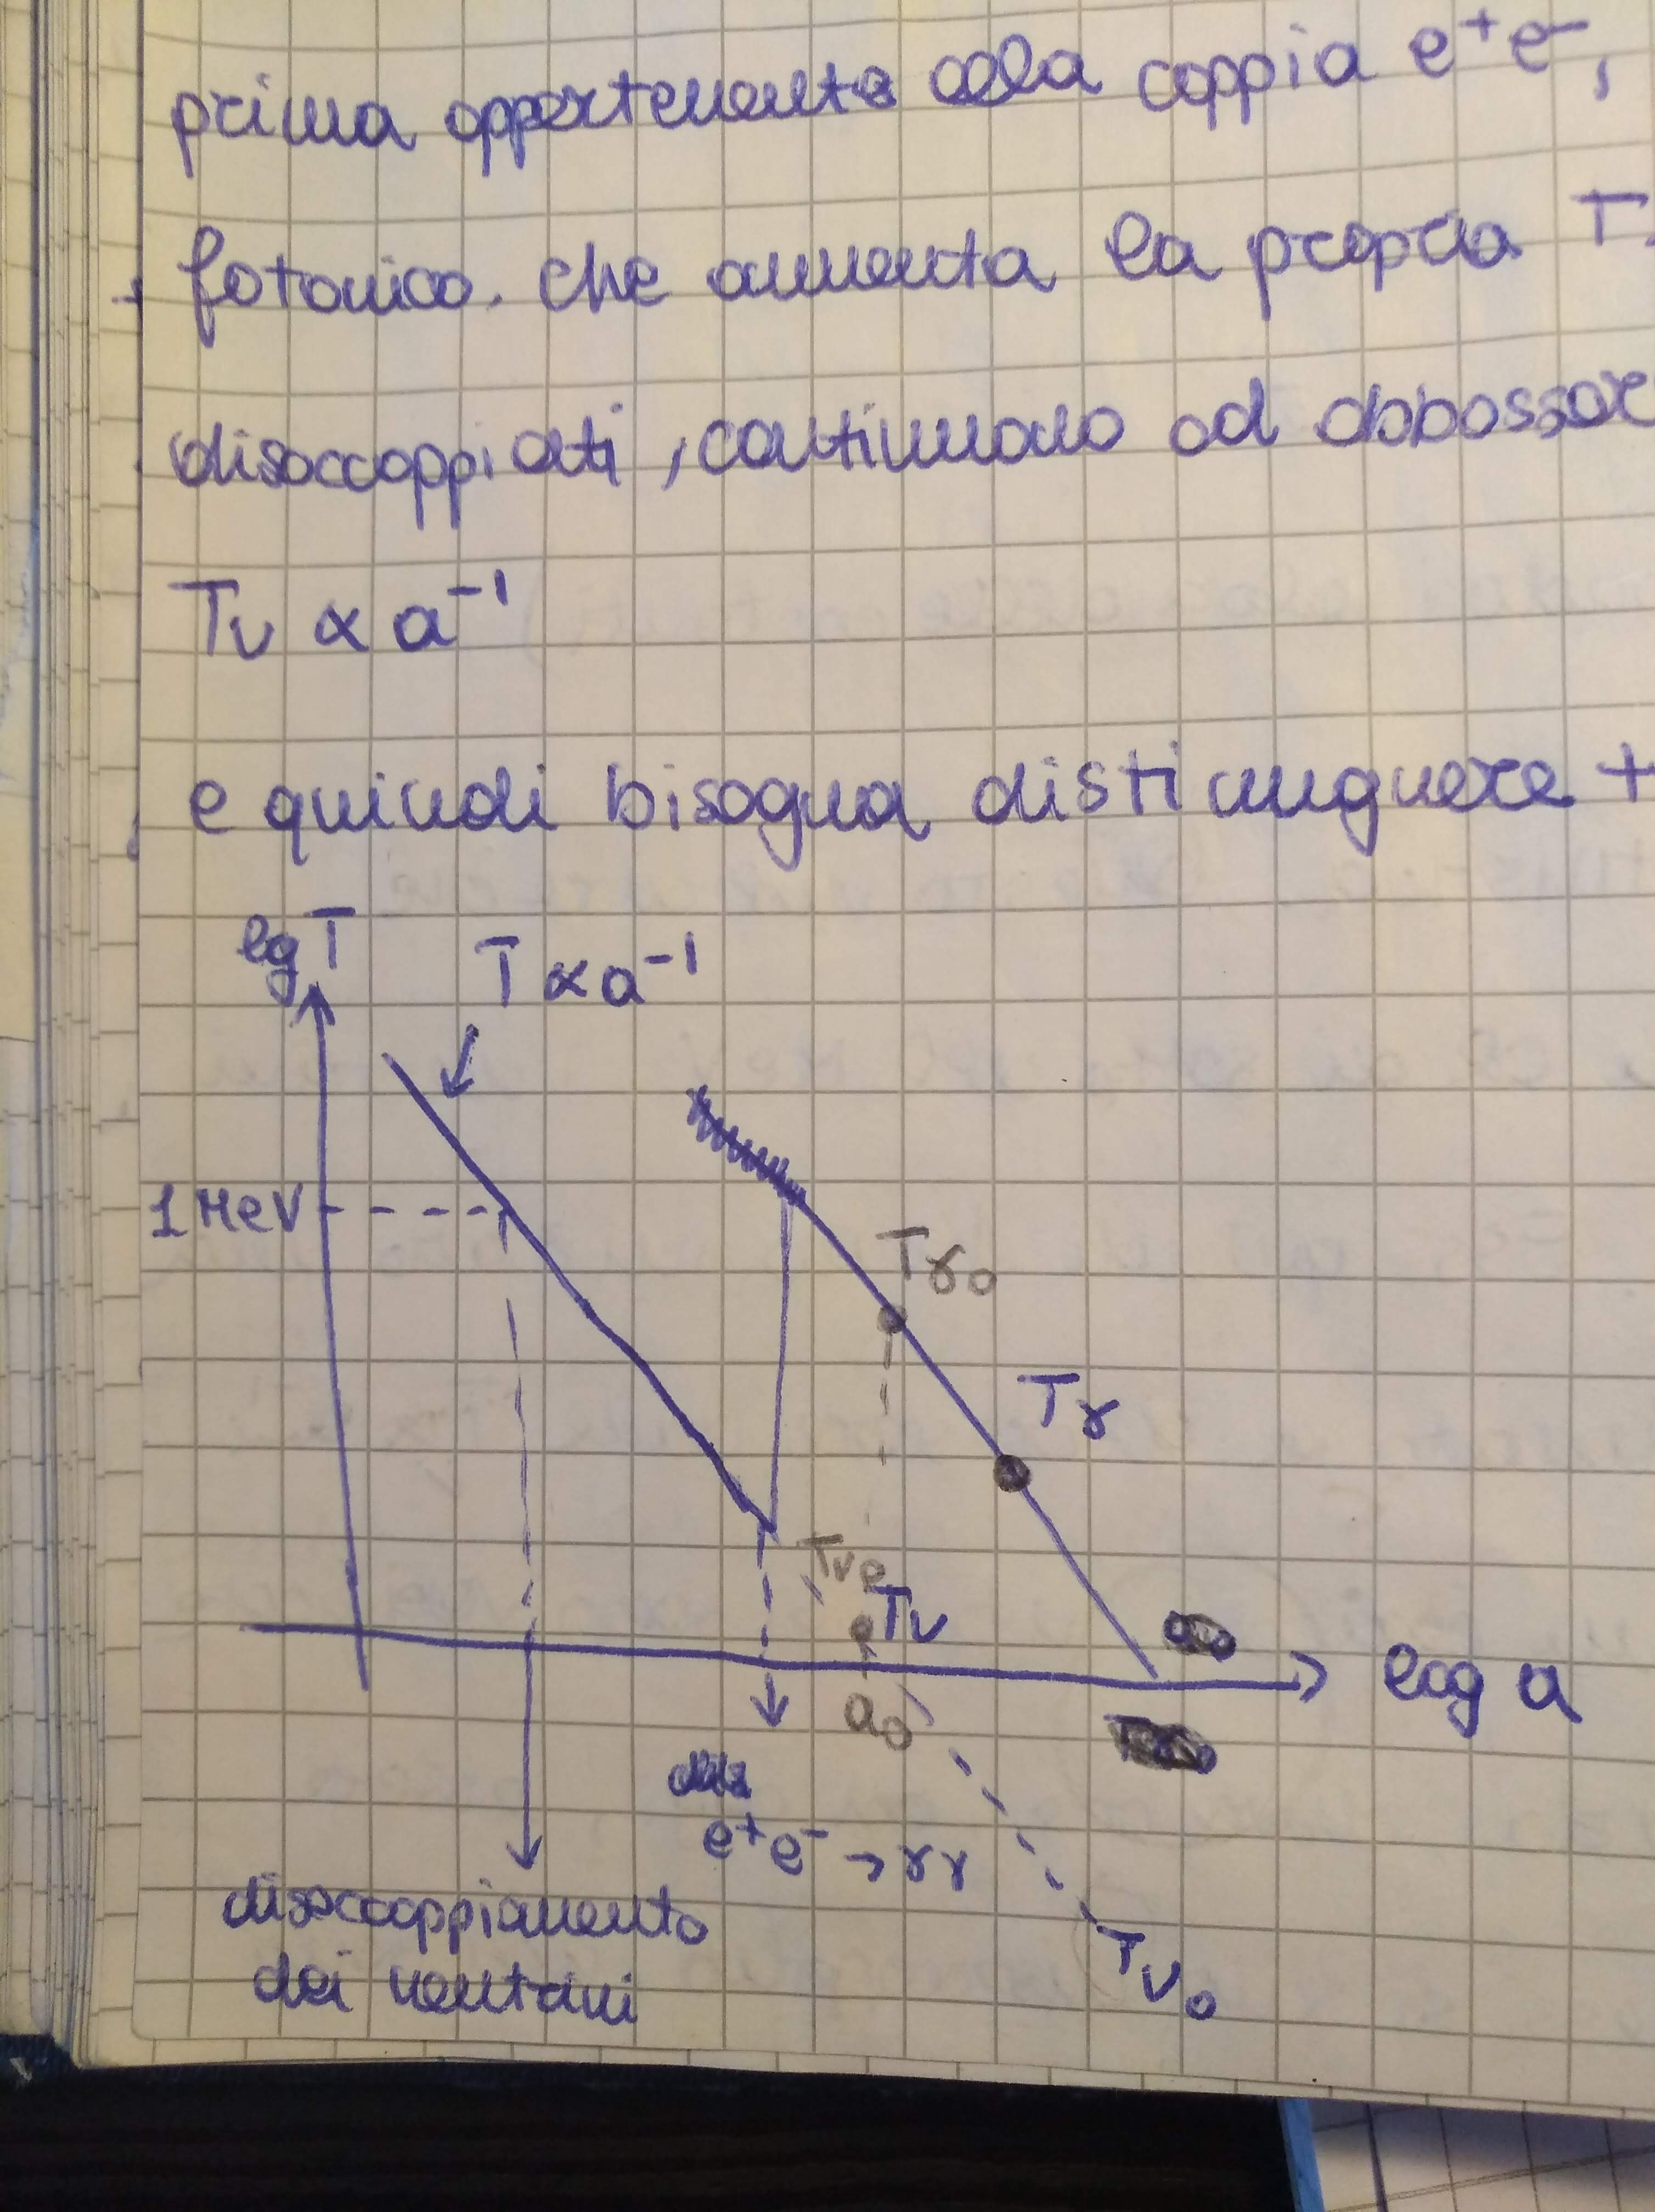 prima appartenente alla coppia e⁺e⁻,
fotonico. che aumenta la propria T.
disaccoppiati, continuano ad abbassare
Tν ∝ a⁻¹
e quindi bisogna distinguere
lg T
T ∝ a⁻¹
1 MeV
Tγ₀
Tγ
Tν₀
Tν
a₀
log a
e⁺e⁻ → γγ
disaccoppiamento
dei neutrini
Tν₀